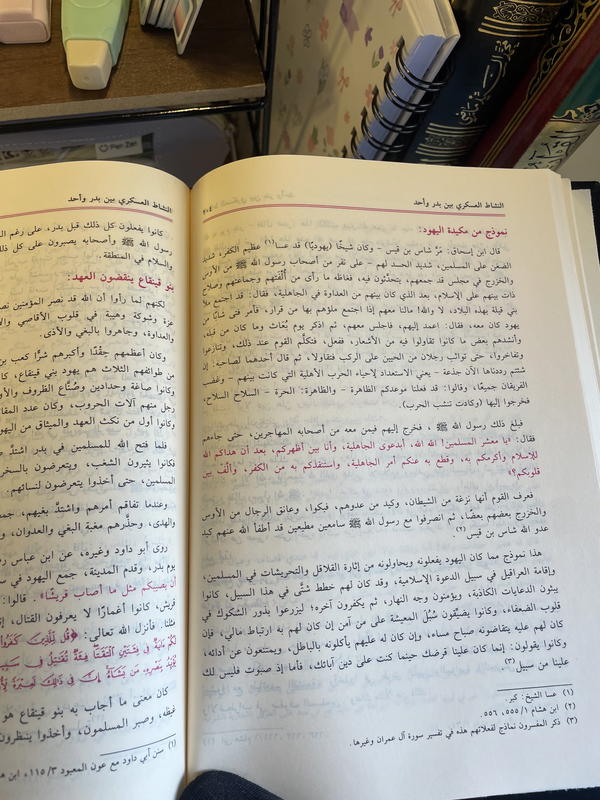 النشاط العسكري بين بدر وأحد
٢٠٤
نموذج من مكيدة اليهود:
قال ابن إسحاق: مَرَّ شاس بن قيس - وكان شيخًا (يهوديًا) قد عسا(١) عظيم الكفر، شديد
الضغن على المسلمين، شديد الحسد لهم - على نفر من أصحاب رسول الله ﷺ من الأوس
والخزرج في مجلس قد جمعهم، يتحدَّثون فيه، فغاظه ما رأى من أُلْفَتهم وجماعتهم وصلاح
ذات بينهم على الإسلام، بعد الذي كان بينهم من العداوة في الجاهلية، فقال: قد اجتمع ملأ
بني قيلة بهذه البلاد، لا والله! مالنا معهم إذا اجتمع ملؤهم بها من قرار، فأمر فتى شابًّا من
يهود كان معه، فقال: اعمد إليهم، فاجلس معهم، ثم اذكر يوم بُعاث وما كان من قبله،
وأنشدهم بعض ما كانوا تقاولوا فيه من الأشعار، ففعل، فتكلَّم القوم عند ذلك، وتنازعوا
وتفاخروا، حتى تواثب رجلان من الحيين على الركب فتقاولا، ثم قال أحدهما لصاحبه: إن
شئتم رددناها الآن جذعة - يعني الاستعداد لإحياء الحرب الأهلية التي كانت بينهم - وغضب
الفريقان جميعًا، وقالوا: قد فعلنا موعدكم الظاهرة - والظاهرة: الحرة - السلاح السلاح،
فخرجوا إليها (وكادت تنشب الحرب).
فبلغ ذلك رسول الله ﷺ، فخرج إليهم فيمن معه من أصحابه المهاجرين، حتى جاءهم
فقال: «يا معشر المسلمين! الله الله، أبدعوى الجاهلية، وأنا بين أظهركم، بعد أن هداكم الله
للإسلام وأكرمكم به، وقطع به عنكم أمر الجاهلية، واستنقذكم به من الكفر، وألَّف بين
قلوبكم؟»
فعرف القوم أنها نزغة من الشيطان، وكيد من عدوهم، فبكوا، وعانق الرجال من الأوس
والخزرج بعضهم بعضًا، ثم انصرفوا مع رسول الله ﷺ سامعين مطيعين قد أطفأ الله عنهم كيد
عدو الله شاس بن قيس(٢).
هذا نموذج مما كان اليهود يفعلونه ويحاولونه من إثارة القلاقل والتحريشات في المسلمين،
وإقامة العراقيل في سبيل الدعوة الإسلامية، وقد كان لهم خطط شتَّى في هذا السبيل، كانوا
يبثون الدعايات الكاذبة، ويؤمنون وجه النهار، ثم يكفرون آخره؛ ليزرعوا بذور الشكوك في
قلوب الضعفاء، وكانوا يضيِّقون سُبُلَ المعيشة على من آمن إن كان لهم به ارتباط مالي، فإن
كان لهم عليه يتقاضونه صباح مساء، وإن كان له عليهم يأكلونه بالباطل، ويمتنعون عن أدائه،
وكانوا يقولون: إنما كان علينا قرضك حينما كنت على دين آبائك، فأما إذ صبوت فليس لك
علينا من سبيل(٣).
(١) عسا الشيخ: كبر.
(٢) ابن هشام ١/ ٥٥٥، ٥٥٦.
(٣) ذكر المفسرون نماذج لفعلاتهم هذه في تفسير سورة آل عمران وغيرها.
النشاط العسكري بين بدر وأحد
كانوا يفعلون كل ذلك قبل بدر، على رغم
رسول الله ﷺ وأصحابه يصبرون على كل ذلك
والسلام في المنطقة
بنو قينقاع ينقضون العهد:
لكنهم لما رأوا أن الله قد نصر المؤمنين نصرا
عزة وشوكة وهيبة في قلوب الأقاصي والأ
والعداوة، وجاهروا بالبغي والأذى.
وكان أعظمهم حِقْدًا وأكبرهم شرًّا كعب بن
من طوائفهم الثلاث هم يهود بني قينقاع، كا
وكانوا صاغة وحدادين وصُنَّاع الظروف والأو
رجل منهم آلات الحروب، وكان عدد المقا
وكانوا أول من نكث العهد والميثاق من اليهو
فلما فتح الله للمسلمين في بدر اشتدَّ
فكانوا يثيرون الشغب، ويتعرضون بالسخر
المسلمين، حتى أخذوا يتعرضون لنسائهم.
وعندما تفاقم أمرهم واشتدَّ بغيهم، جم
والهدى، وحذَّرهم مغبة البغي والعدوان،
روى أبو داود وغيره، عن ابن عباس
يوم بدر، وقدم المدينة، جمع اليهود في
أن يصيبكم مثل ما أصاب قريشًا». قالوا:
قريش، كانوا أغمارًا لا يعرفون القتال، إ
مثلنا. فأنزل الله تعالى: ﴿قُل لِّلَّذِينَ كَفَرُوا
لَكُمْ ءَايَةٌ فِى فِئَتَيْنِ ٱلْتَقَتَا فِئَةٌ تُقَٰتِلُ فِى سَبِيلِ
يُؤَيِّدُ بِنَصْرِهِۦ مَن يَشَآءُ إِنَّ فِى ذَٰلِكَ لَعِبْرَةً
كان معنى ما أجاب به بنو قينقاع هو
غيظه، وصبر المسلمون، وأخذوا ينظرون
(١) سنن أبي داود مع عون المعبود ٣/ ١١٥،